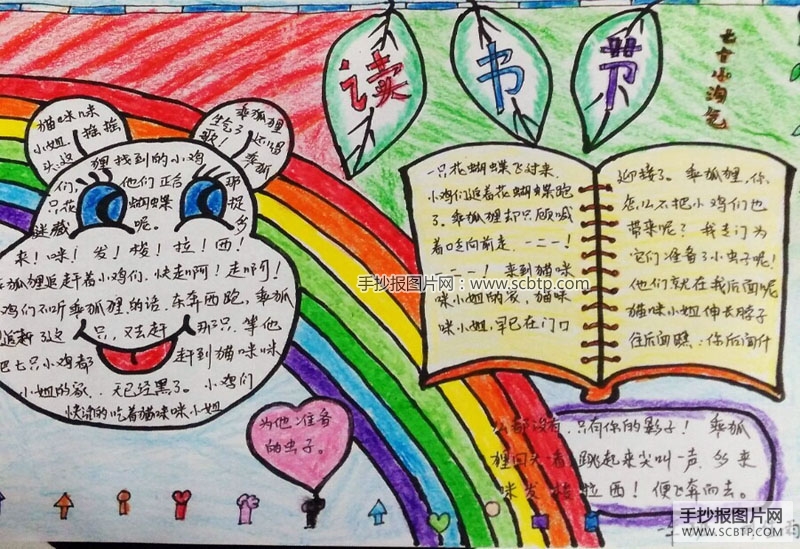 读书节
七个小淘气
一只花蝴蝶飞过来,
小鸡们追着花蝴蝶跑
了.乖狐狸却只顾喊
着口号向前走.一二一!
一二一! 来到猫咪
咪小姐的家,猫咪
咪小姐,早已在门口
迎接了。乖狐狸,你
怎么不把小鸡们也
带来呢? 我专门为
它们准备了小虫子呢!
他们就在我后面呢
猫咪小姐伸长脖子
往后面瞧:你后面什
么都没有.只有你的影子! 乖狐
狸回头一看,跳起来尖叫一声.多来
咪发梭拉西! 便飞奔而去。
乖狐狸
生气了
歌!
猫咪咪
小姐.摇摇
头:这
狸找到的小鸡
们,他们正合那
只花蝴蝶捉
迷藏呢。多
来!咪!发!梭!拉!西!
乖狐狸追赶着小鸡们.快走啊!走啊!
小鸡们不听乖狐狸的话.东奔西跑,乖狐
追赶了这只,又去赶那只.等他
把七只小鸡都赶到猫咪咪
小姐的家.天已经黑了。小鸡们
快活的吃着猫咪咪小姐
为他准备
的虫子。
手抄报图片网:www.scbtp.com
手抄报图片网
WWW.SCBTP.COM